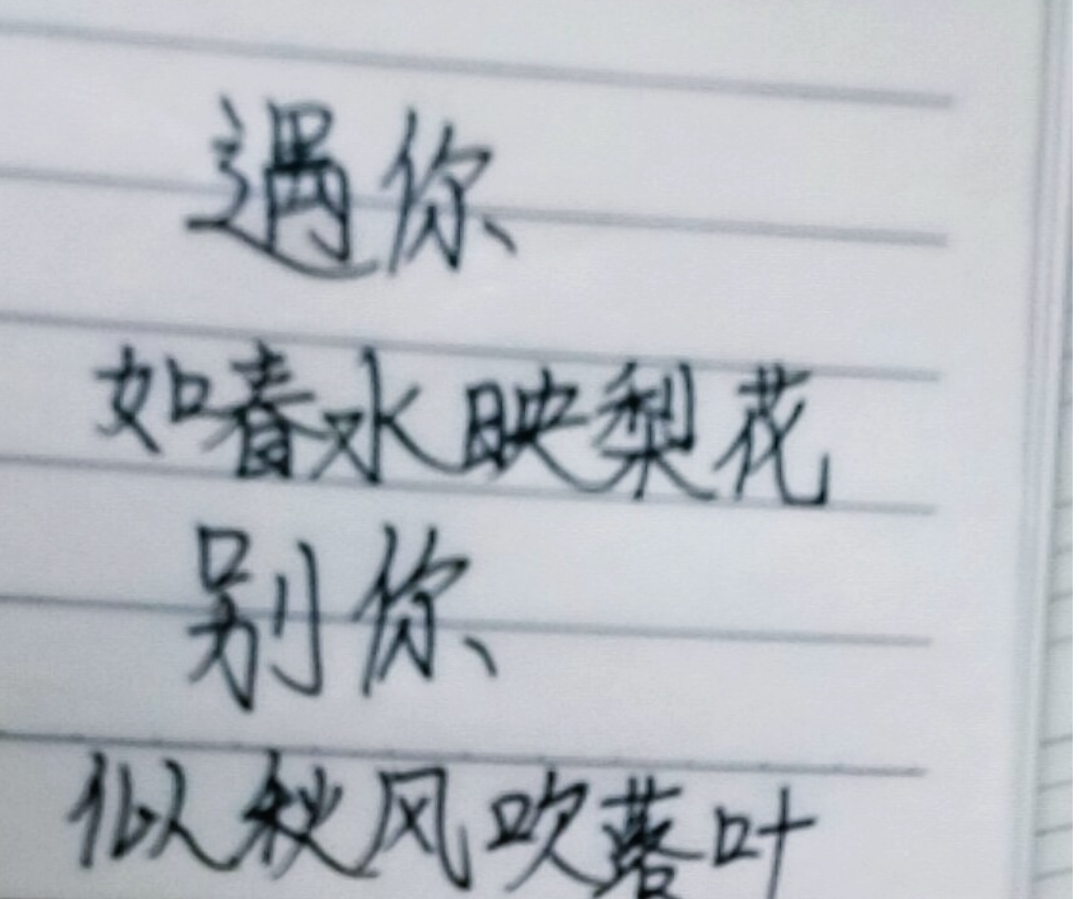 遇你
如春水映梨花
别你
似秋风吹落叶